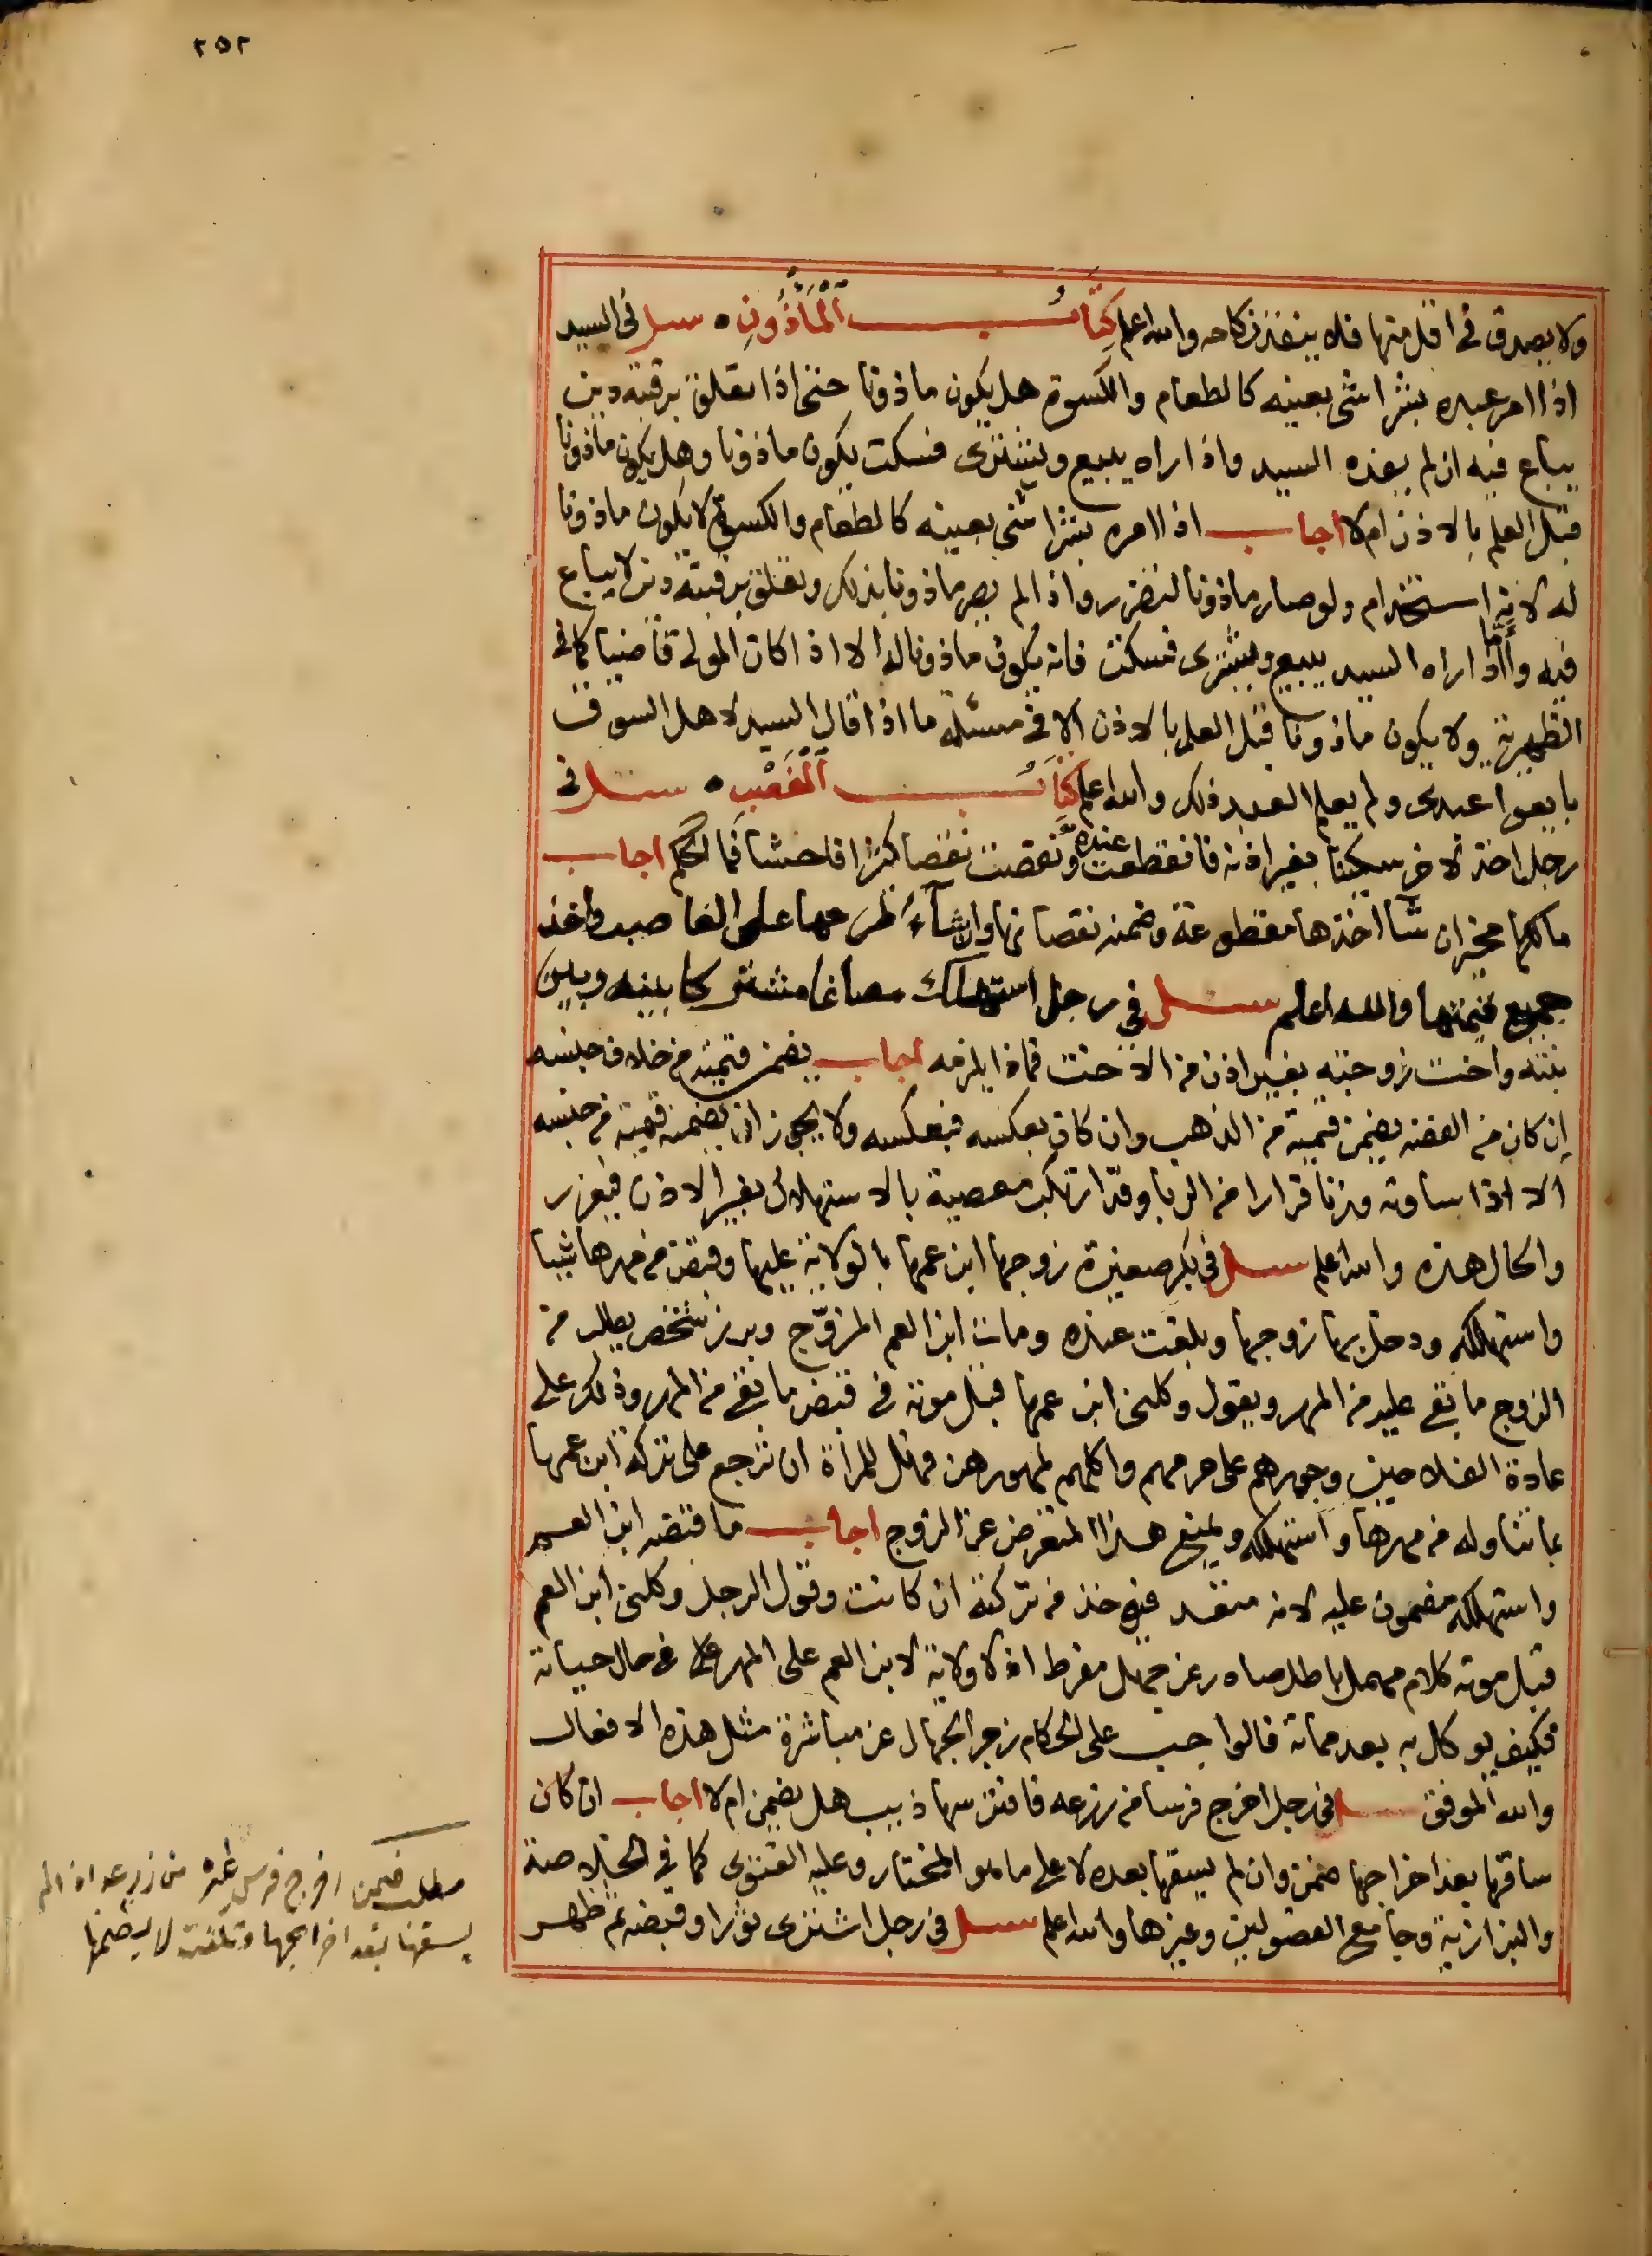 ٢٥٢
ولا يصدق في اقل منها فله ينفذ نكاحه والله اعلم كِتَابُ ٱلْمَأْذُونِ ٥ سئل في السيد
اذا امر عبده بشرا شي بعينه كالطعام والكسوة هل يكون ماذونا حتى اذا تعلق برقبته دين
يباع فيه ان لم يفده السيد واذا راه يبيع ويشترى فسكت يكون ماذونا وهل يكون ماذونا
قبل العلم بالاذن ام لا اجاب اذا امره بشرا شي بعينه كالطعام والكسوة لا يكون ماذونا
له لانه استخدام ولو صار ماذونا لتضرر واذا لم يصر ماذونا بذلك وتعلق برقبته دين لا يباع
فيه وأما اذا راه السيد يبيع ويشترى فسكت فانه يكون ماذونا له الا اذا كان المولى قاضيا كما في
الظهيرية ولا يكون ماذونا قبل العلم بالاذن الا في مسئلة ما اذا قال السيد لاهل السوق
بايعوا عبدى ولم يعلم العبد ذلك والله اعلم كِتَابُ ٱلْغَصْبِ ٥ سئل في
رجل اخذ لاخر سكينا بغير اذنه فانقطعت عنده ونقصت نقصا كثرا فاحشا فما الحكم اجاب
مالكها مخير ان شآ اخذها مقطوعة وضمنه نقصانها وان شآء طرحها على الغاصب واخذ
جميع قيمتها والله اعلم سئل في رجل استهلك مصاغا مشتركا بينه وبين
بنته واخت زوجته بغير اذن من الاخت فماذا يلزمه اجاب يضمن قيمته من خلاف جنسه
إن كان من الفضه يضمن قيمته من الذهب وان كان بعكسه فبعكسه ولا يجوز ان يضمنه قيمته من جنسه
الا اذا ساوته وزنا فرارا من الربا وقد ارتكب معصية بالاستهلاك بغير الاذن فيعزر
والحال هذه والله اعلم سئل في بكر صغيرة زوجها ابن عمها بالولاية عليها وقبض من مهرها شيا
واستهلكه ودخل بها زوجها وبلغت عنده ومات ابن العم المزوّج وبرز شخص يطلب من
الزوج ما بقي عليه من المهر ويقول وكلنى ابن عمها قبل موته في قبض ما بقي من المهر وذلك على
عادة الفلاحين وجورهم على حرمهم واكلهم لمهورهن فهل للمرأة ان ترجع على تركة ابن عمها
بما تناوله من مهرها واستهلكه ويمنع هذا المتعرض عن الزوج اجاب ما قبضه ابن العم
واستهلكه مضمون عليه لانه متعد فيوخذ من تركته ان كانت وقول الرجل وكلنى ابن العم
قبل موته كلام مهمل باطل صادر عن جهل مفرط اذ لا ولاية لابن العم على المهر في حال حياته
فكيف يوكل به بعد مماته قالوا يجب على الحكام زجر الجهال عن مباشرة مثل هذه الافعال
والله الموفق سئل في رجل اخرج فرسا من زرعه فافترسها ذيب هل يضمن ام لا اجاب ان كان
ساقها بعد اخراجها ضمن وان لم يسقها بعده لا على ما هو المختار وعليه الفتوى كما في الخلاصة
والبزازية وجامع الفصولين وغيرها والله اعلم سئل في رجل اشترى ثورا وقبضه ثم ظهر
مطلب فيمن اخرج فرس غيره من زرعه اذا لم
يسقها بعد اخراجها وتلفت لا يضمنها